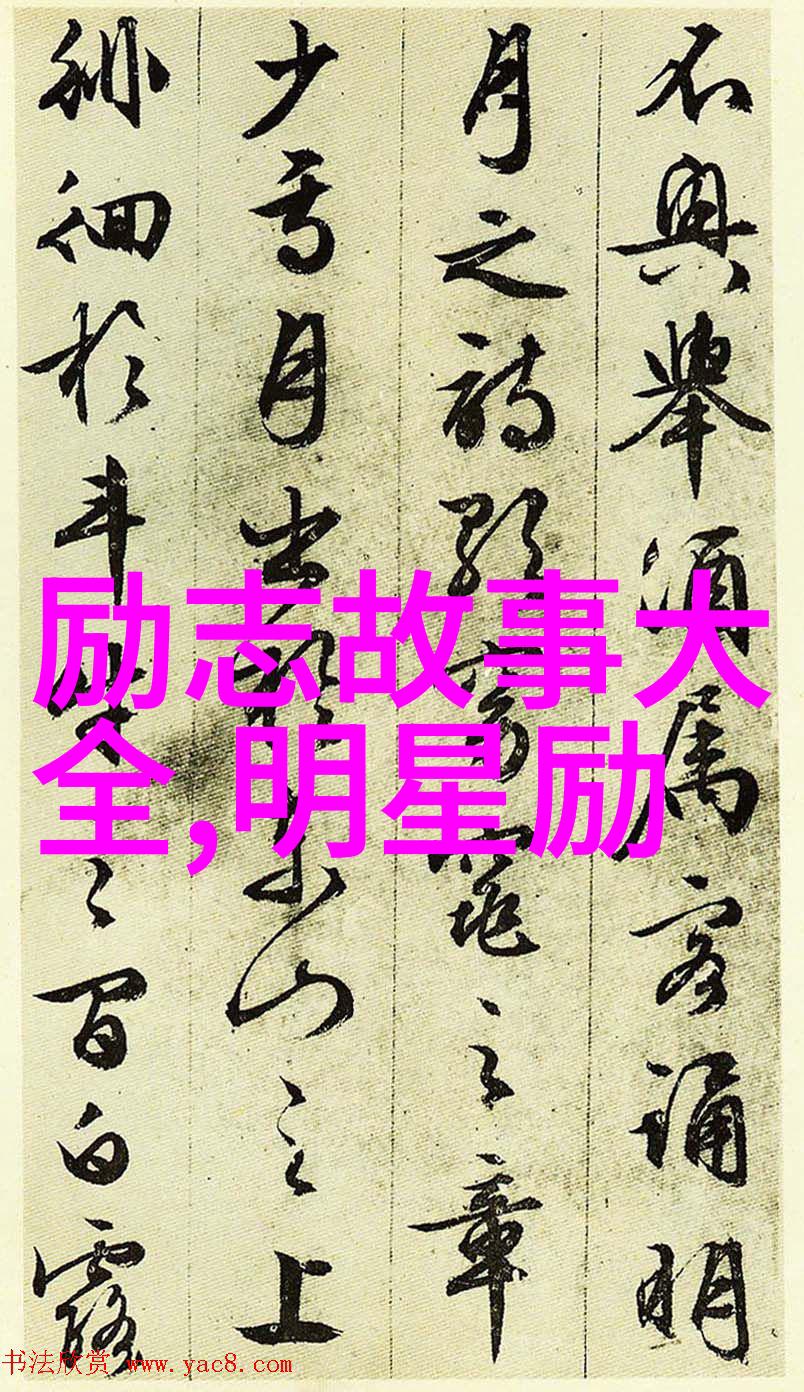 不興舉酒屬客誦明
月之詩歌窈窕之章
少焉月出於東山之上
徘徊於斗牛之間白露
励志故事大
全,明星励
书法欣赏 www.yac8.com